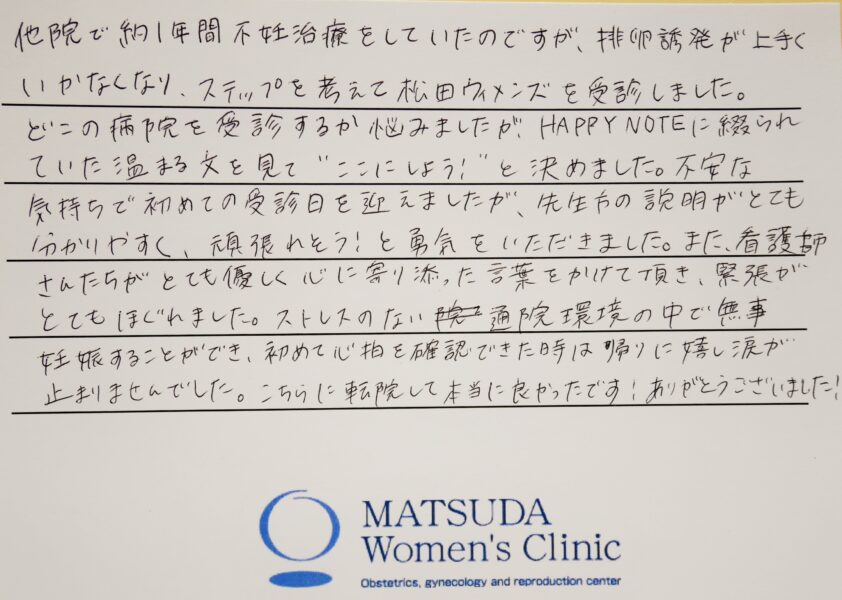 他院で約1年間不妊治療をしていたのですが、排卵誘発が上手く
いかなくなり、ステップを考えて松田ウィメンズを受診しました。
どこの病院を受診するか悩みましたが、HAPPY NOTEに綴られ
ていた温まる文を見て"ここにしよう!"と決めました。不安な
気持ちで初めての受診日を迎えましたが、先生方の説明がとても
分かりやすく、頑張れそう!と勇気をいただきました。また、看護師
さんたちがとても優しく心に寄り添った言葉をかけて頂き、緊張が
とてもほぐれました。ストレスのない通院環境の中で無事
妊娠することができ、初めて心拍を確認できた時は帰りに嬉し涙が
止まりませんでした。こちらに転院して本当に良かったです!ありがとうございました!
MATSUDA
Women's Clinic
Obstetrics, gynecology and reproduction center